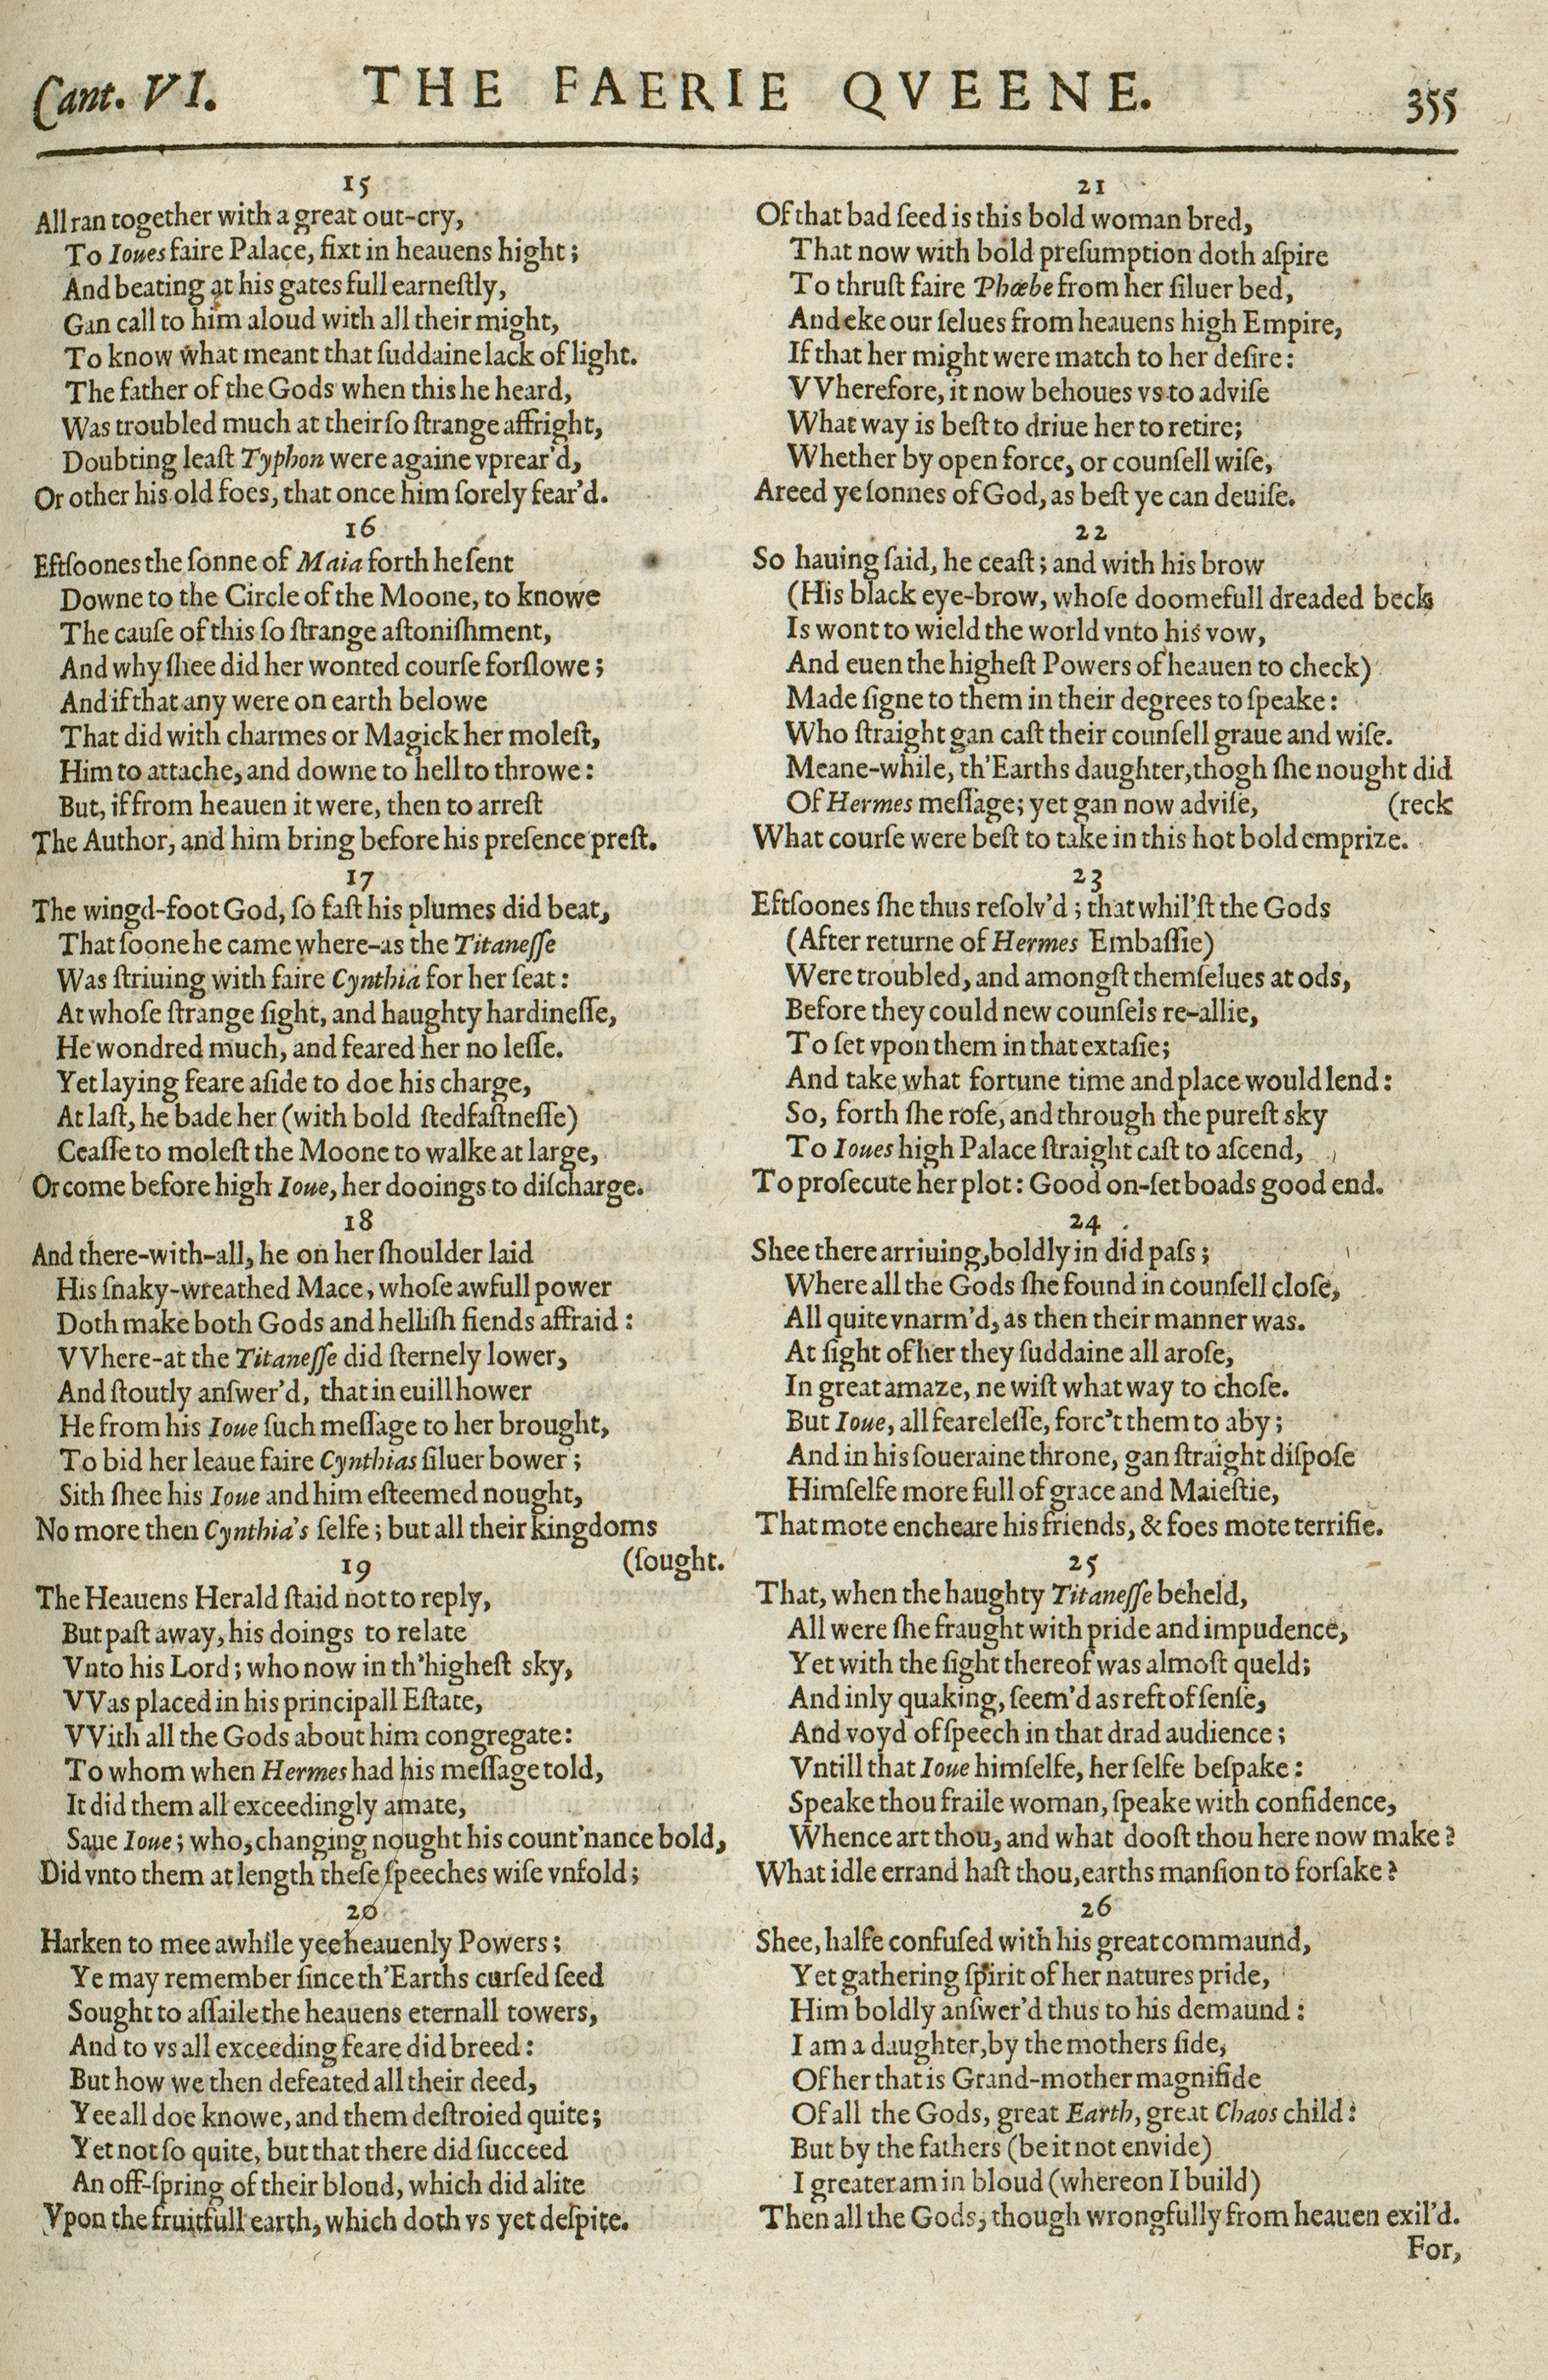 Cant. VI. THE FAERIE QVEENE. 355
15
All ran together with a great out-cry,
To Ioues faire Palace, fixt in heauens hight;
And beating at his gates full earneſtly,
Gan call to him aloud with all their might,
To know what meant that ſuddaine lack of light.
The father of the Gods when this he heard,
Was troubled much at their ſo ſtrange affright,
Doubting leaſt Typhon were againe vprear'd,
Or other his old foes, that once him ſorely fear'd.
16
Eftſoones the ſonne of Maia forth he ſent
Downe to the Circle of the Moone, to knowe
The cauſe of this ſo ſtrange aſtoniſhment,
And why ſhee did her wonted courſe forſlowe;
And if that any were on earth belowe
That did with charmes or Magick her moleſt,
Him to attache, and downe to hell to throwe:
But, if from heauen it were, then to arreſt
The Author, and him bring before his preſence preſt.
17
The wingd-foot God, ſo faſt his plumes did beat,
That ſoone he came where-as the Titaneſſe
Was ſtriuing with faire Cynthia for her ſeat:
At whoſe ſtrange ſight, and haughty hardineſſe,
He wondred much, and feared her no leſſe.
Yet laying feare aſide to doe his charge,
At laſt, he bade her (with bold ſtedfaſtneſſe)
Ceaſſe to moleſt the Moone to walke at large,
Or come before high Ioue, her dooings to diſcharge.
18
And there-with-all, he on her ſhoulder laid
His ſnaky-wreathed Mace, whoſe awfull power
Doth make both Gods and helliſh fiends affraid:
VVhere-at the Titaneſſe did ſternely lower,
And ſtoutly anſwer'd, that in euill hower
He from his Ioue ſuch meſſage to her brought,
To bid her leaue faire Cynthias ſiluer bower;
Sith ſhee his Ioue and him eſteemed nought,
No more then Cynthia's ſelfe; but all their kingdoms
(ſought.
19
The Heauens Herald ſtaid not to reply,
But paſt away, his doings to relate
Vnto his Lord; who now in th'higheſt sky,
VVas placed in his principall Eſtate,
VVith all the Gods about him congregate:
To whom when Hermes had his meſſage told,
It did them all exceedingly amate,
Saue Ioue; who, changing nought his count'nance bold,
Did vnto them at length theſe ſpeeches wiſe vnfold;
20
Harken to mee awhile yee heauenly Powers;
Ye may remember ſince th'Earths curſed ſeed
Sought to aſſaile the heauens eternall towers,
And to vs all exceeding feare did breed:
But how we then defeated all their deed,
Yee all doe knowe, and them deſtroied quite;
Yet not ſo quite, but that there did ſucceed
An off-ſpring of their bloud, which did alite
Vpon the fruitfull earth, which doth vs yet deſpite.
21
Of that bad ſeed is this bold woman bred,
That now with bold preſumption doth aſpire
To thruſt faire Phœbe from her ſiluer bed,
And eke our ſelues from heauens high Empire,
If that her might were match to her deſire:
VVherefore, it now behoues vs to adviſe
What way is beſt to driue her to retire;
Whether by open force, or counſell wiſe,
Areed ye ſonnes of God, as beſt ye can deuiſe.
22
So hauing ſaid, he ceaſt; and with his brow
(His black eye-brow, whoſe doomefull dreaded beck
Is wont to wield the world vnto his vow,
And euen the higheſt Powers of heauen to check)
Made ſigne to them in their degrees to ſpeake:
Who ſtraight gan caſt their counſell graue and wiſe.
Meane-while, th'Earths daughter, thogh ſhe nought did
Of Hermes meſſage; yet gan now adviſe, (reck
What courſe were beſt to take in this hot bold emprize.
23
Eftſoones ſhe thus reſolv'd; that whil'ſt the Gods
(After returne of Hermes Embaſſie)
Were troubled, and amongſt themſelues at ods,
Before they could new counſels re-allie,
To ſet vpon them in that extaſie;
And take what fortune time and place would lend:
So, forth ſhe roſe, and through the pureſt sky
To Ioues high Palace ſtraight caſt to aſcend,
To proſecute her plot: Good on-ſet boads good end.
24
Shee there arriuing, boldly in did paſs;
Where all the Gods ſhe found in counſell cloſe,
All quite vnarm'd, as then their manner was.
At ſight of her they ſuddaine all aroſe,
In great amaze, ne wiſt what way to choſe.
But Ioue, all feareleſſe, forc't them to aby;
And in his ſoueraine throne, gan ſtraight diſpoſe
Himſelfe more full of grace and Maieſtie,
That mote encheare his friends, & foes mote terrifie.
25
That, when the haughty Titaneſſe beheld,
All were ſhe fraught with pride and impudence,
Yet with the ſight thereof was almoſt queld;
And inly quaking, ſeem'd as reft of ſenſe,
And voyd of ſpeech in that drad audience;
Vntill that Ioue himſelfe, her ſelfe beſpake:
Speake thou fraile woman, ſpeake with confidence,
Whence art thou, and what dooſt thou here now make?
What idle errand haſt thou, earths manſion to forſake?
26
Shee, halfe confuſed with his great commaund,
Yet gathering ſpirit of her natures pride,
Him boldly anſwer'd thus to his demaund:
I am a daughter, by the mothers ſide,
Of her that is Grand-mother magnifide
Of all the Gods, great Earth, great Chaos child:
But by the fathers (be it not envide)
I greater am in bloud (whereon I build)
Then all the Gods, though wrongfully from heauen exil'd.
For,